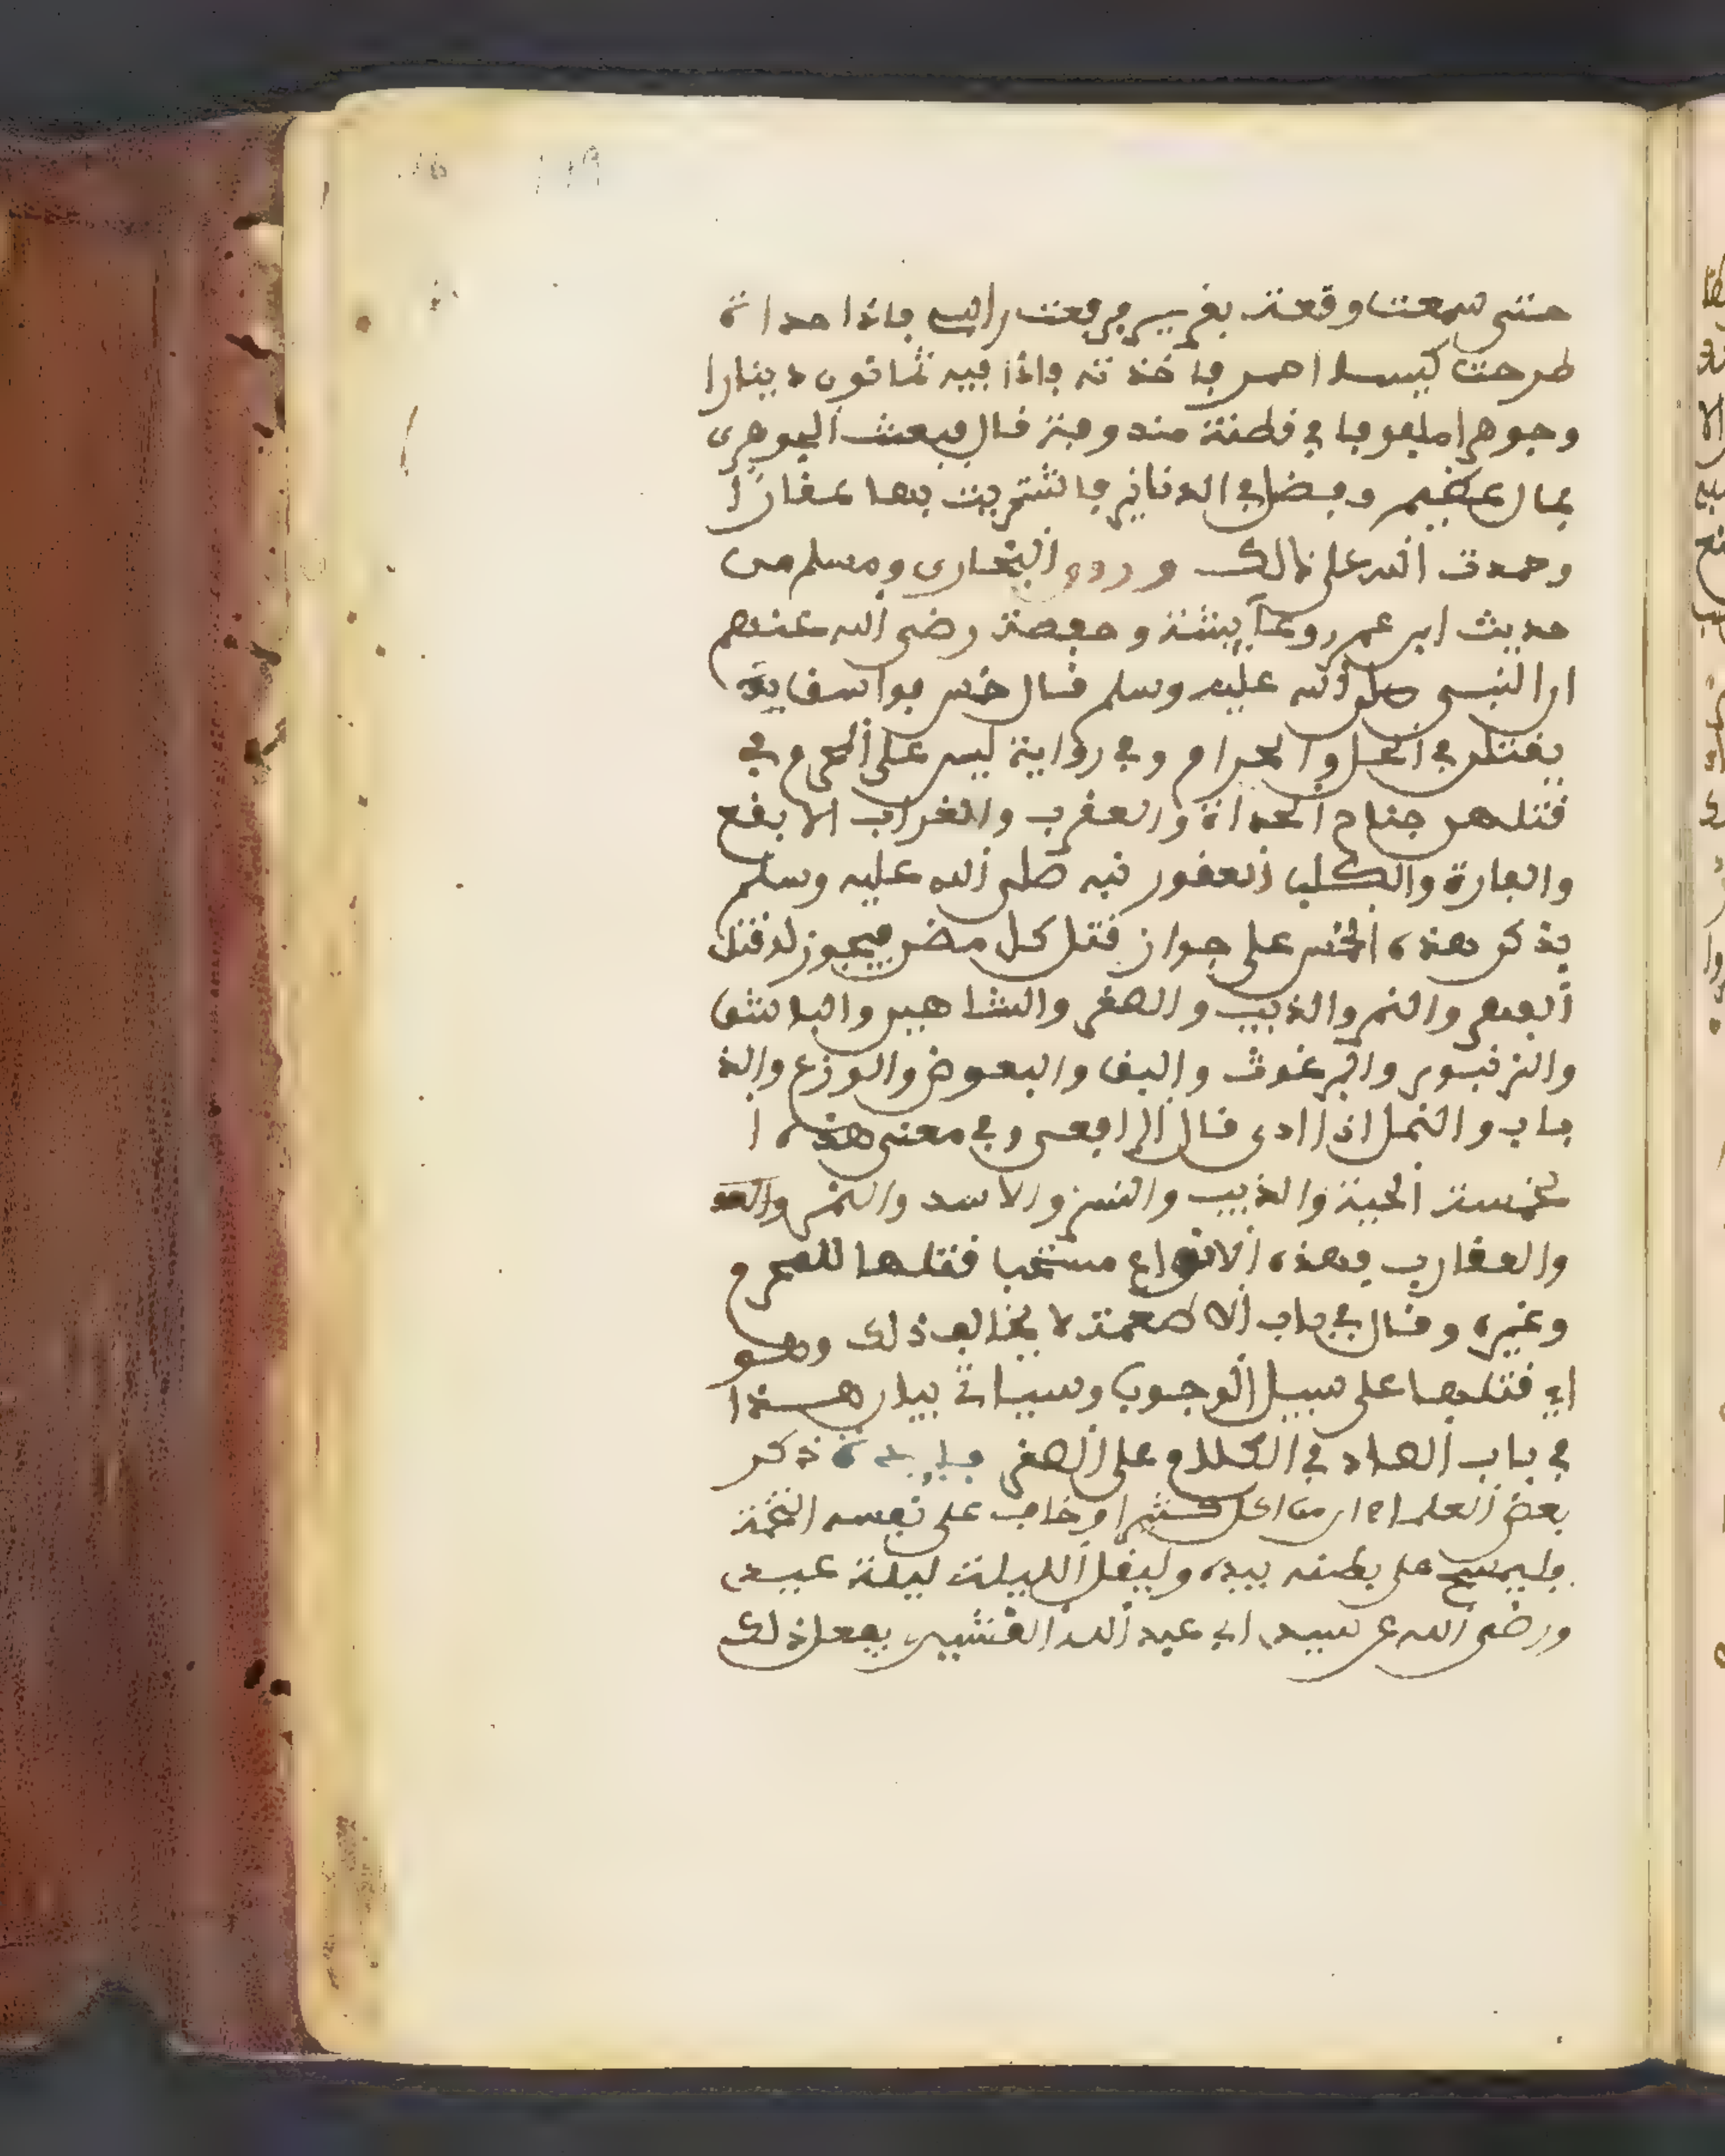 حتى سمعت وقعة بقربي فرفعت راسي فاذا حداة
طرحت كيسا احمر فاخذته فاذا فيه ثمانون دينارا
وجوهرا ملفوفا في قطنة مندوفة قال فبعث الجوهرى
بمال عظيم وفضل لي الدنانير فاشتريت بها عقارا
وحمدت الله على ذالك وروى البخارى ومسلم من
حديث ابن عمر وعآيشة وحفصة رضى الله عنهم
ان النبي صلى الله عليه وسلم قال خمس فواسق يقـ
يقتلن في الحل والحرام وفي رواية ليس على المحرم في
قتلهن جناح الحداة والعقرب والغراب الابقع
والفارة والكلب العقور نبه صلى الله عليه وسلم
بذكر هذه الخمس على جواز قتل كل مضر فيجوز له قتل
الفهد والنمر والذيب والصقر والشاهين والباشق
والزنبور والبرغوث والبق والبعوض والوزغ والذ
باب والنمل اذا اذى قال الرافعى وفي معنى هذه ا
لخمسة الحية والذيب والنسر والاسد والنمر
والعقارب فهذه الانواع مستحب قتلها للمحرم
وغيره وقال في باب الاطعمة لا يخالف ذلك وهو
اي قتلها على سبيل الوجوب وسياتي بيان هـذا
في باب الصاد في الكلام على الصقر فايدة ذكر
بعض العلماء ان من اكل كثيرا وخاف على نفسه التخمة
فليمسح على بطنه بيده وليقل الليلة ليلة عيدى
ورضى الله عن سيدي ابي عبد الله القرشي يفعل ذلك